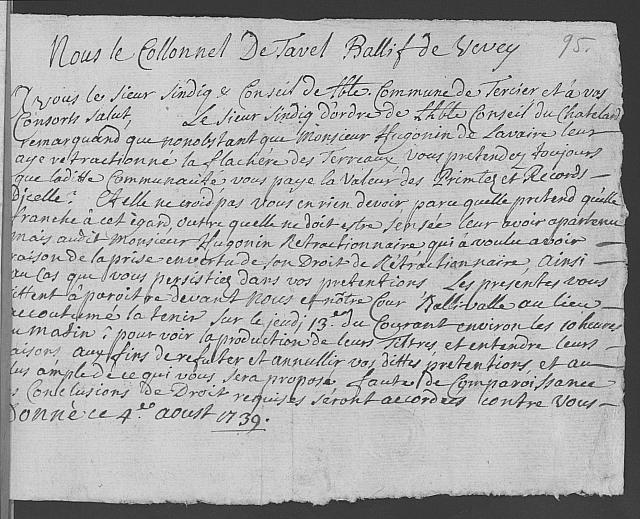 95.
Nous le Collonnel De Tavel Ballif de Vevey
A vous les Sieur Sindiq & Conseil de hble. Commune de Tercier et à vos
Consorts Salut, Le Sieur Sindiq d'ordre de L'hble Conseil du Chatelard
remarquand que nonobstant que Monsieur Hugonin de Lavaire leur
aye retractionné la flachére des Terreaux vous pretendez toujours
que laditte Communauté vous paye la valeur des Primtez et Records
D'icelle; Et elle ne croid pas vous en rien devoir parce quelle pretend qu'elle
franche à cet egard, outre quelle ne doit estre sensée leur avoir apartenu
mais audit Monsieur Hugonin Retractionnaire qui a voulu avoir
raison de la prise en vertu de son Droit de Rétractionnaire, ainsi
au Cas que vous persistiez dans vos pretentions Les presentes vous
cittent à paroitre devant Nous et nôtre Cour Ballivalle au lieu
accoutumé la tenir sur le jeudj 13.e du Courant environ les 10 heures
du matin; pour voir la production de leurs Tittres et entendre leurs
raisons aux fins de refuter et annullir vos dittes prétentions, et au
plus ample de ce qui vous sera proposé, faute de Comparoissance
les Conclusions de Droit requises seront accordées contre Vous
Donné ce 4.e aoust 1739.